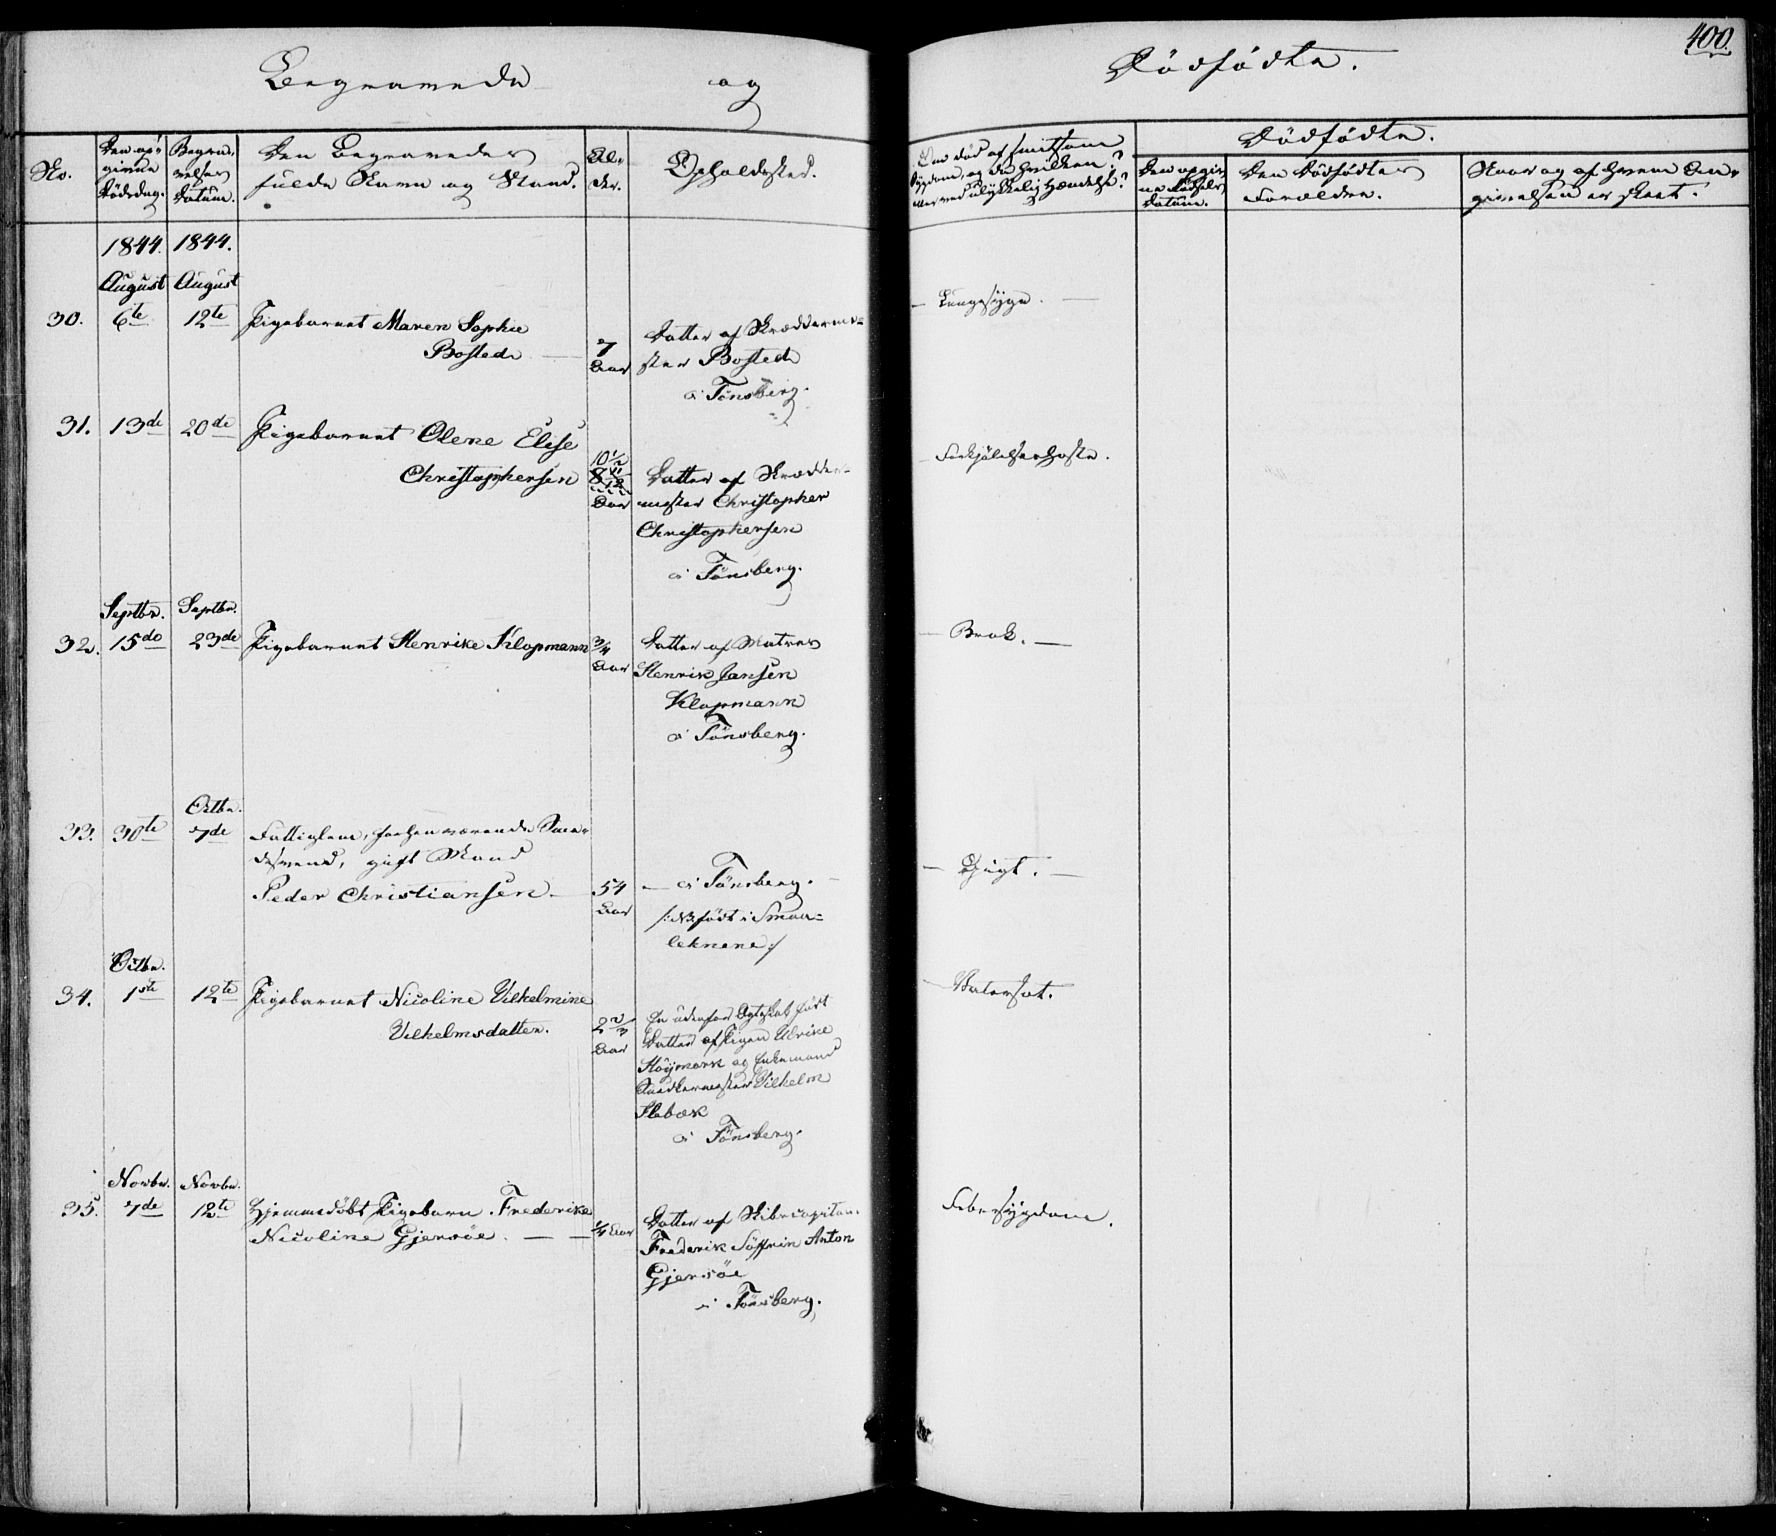 Begravede og Dødfødte.
400.
No.
Den opgivne Dødsdag.
Begravelses Datum.
Den Begravedes fulde Navn og Stand.
Alder.
Opholdssted.
Om død af smitsom Sygdom, og da hvilken? eller ved ulykkelig Hændelse?
Dødfødte.
Den opgivne Fødsels Datum.
Den Dødfødtes Forældre.
Naar og af hvem Angivelsen er skeet.
1844. 1844.
August August
30. 6te 12te Pigebarnet Maren Sophie
Bostede
7 Aar
Datter af Skræddermester
Bostede
i Tönsberg.
Lungesyge.
31. 13de 20de Pigebarnet Olene Elise
Christophersen
10½
8 11/12
Aar
Datter af Skrædder-
mester Christopher
Christophersen
i Tönsberg.
Forkjölelseshoste.
Septbr. Septbr.
32. 15de 23de Pigebarnet Henrike Klopmann
3/4
Aar
Datter af Matros
Henrik Jansen
Klopmann
i Tönsberg.
Brok.
Octbr.
33. 30te 7de Fattiglem, forhenværende
gift Mand
Peder Christiansen
54
Aar
i Tönsberg.
/: NB födt i Smaa-
lehnene :/
Gigt.
Octbr.
34. 1ste 12te Pigebarnet Nicoline Vilhelmine
Vilhelmsdatter.
2 2/3
Aar
En udenfor Ægteskab födt
Datter af Pigen Ulrike
Höymark og Enkemand
Snedkermester Vilhelm
Flebæk
i Tönsberg.
Vatersot.
Novbr. Novbr.
35. 7de 12te Hjemmedöbt Pigebarn Frederike
Nicoline Gjersöe.
1/4 Aar
Datter af Skibscapitain
Frederik Söffrin Anton
Gjersöe
i Tönsberg.
Febersygdom.